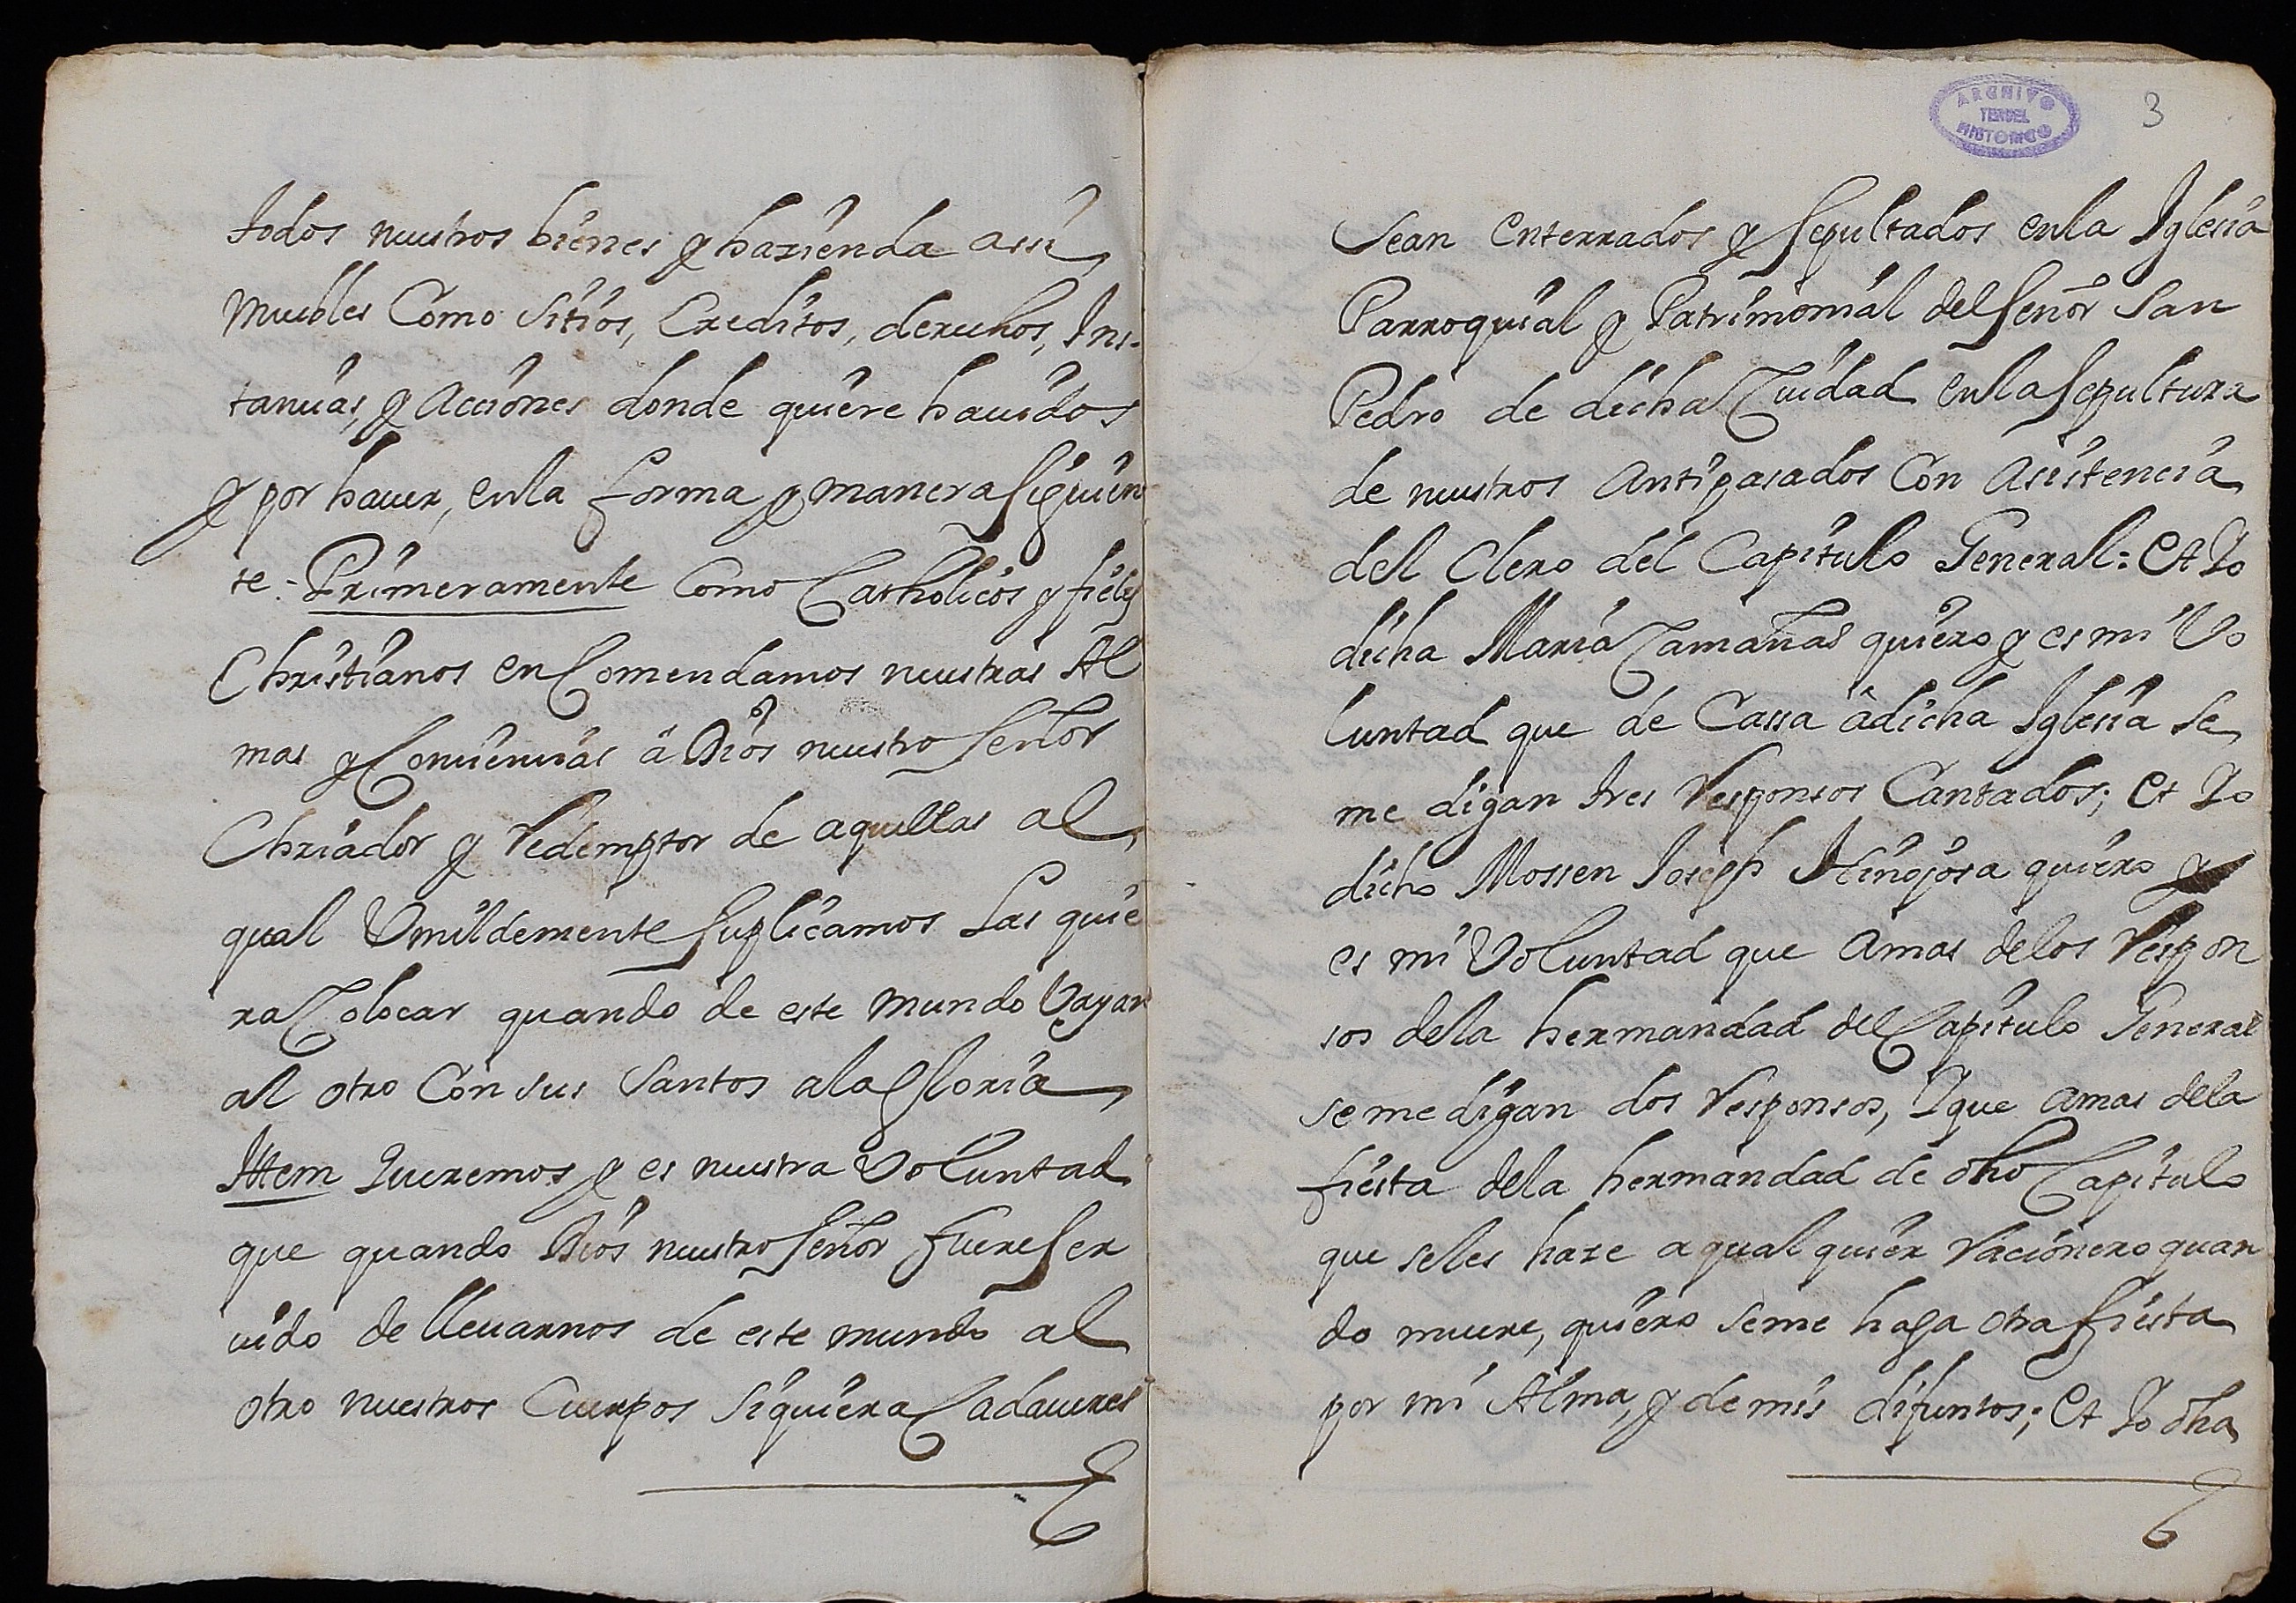 todos nuestros bienes y hazienda assi
muebles Como sitios, Creditos, derechos, Ins-
tancias, y Acciones donde quiere hauidos
y por hauer, enla forma y manera siguien
te: Primeramente Como Catholicos y fieles
Christianos enComendamos nuestras Al
mas y Conciencias â Dios nuestro señor
Chriador y redemptor de aquellas al
qual Vmildemente suplicamos Las quie
ra Colocar quando de este mundo Vayan
al otro Con sus santos ala Gloria
Ittem queremos y es nuestra Voluntad
que quando Dios nuestro señor fuere ser
uido de lleuarnos de este mundo al
otro nuestros Cuerpos siquiera Cadaueres
ARCHIVO
TERUEL
HISTORICO
3
Sean enterrados y sepultados enla Iglesia
Parroquial y Patrimonial del señor san
Pedro de dicha Ciudad enla sepultura
de nuestros Antipasados Con Asistencia
del Clero del Capitulo General: Et Yo
dicha Maria Camañas quiero y es mi Vo
luntad que de Cassa âdicha Iglesia se
me digan tres responsos Cantados; Et Yo
dicho Mossen Joseph Hinojosa quiero y
es mi Voluntad que Amas delos respon
sos dela hermandad del Capitulo General
seme digan dos responsos, Yque amas dela
fiesta dela hermandad de dho Capitulo
que seles haze a qual quier racionero quan
do muere, quiero seme haga otra fiesta
por mi Alma, y de mis difuntos; Et Yo dha